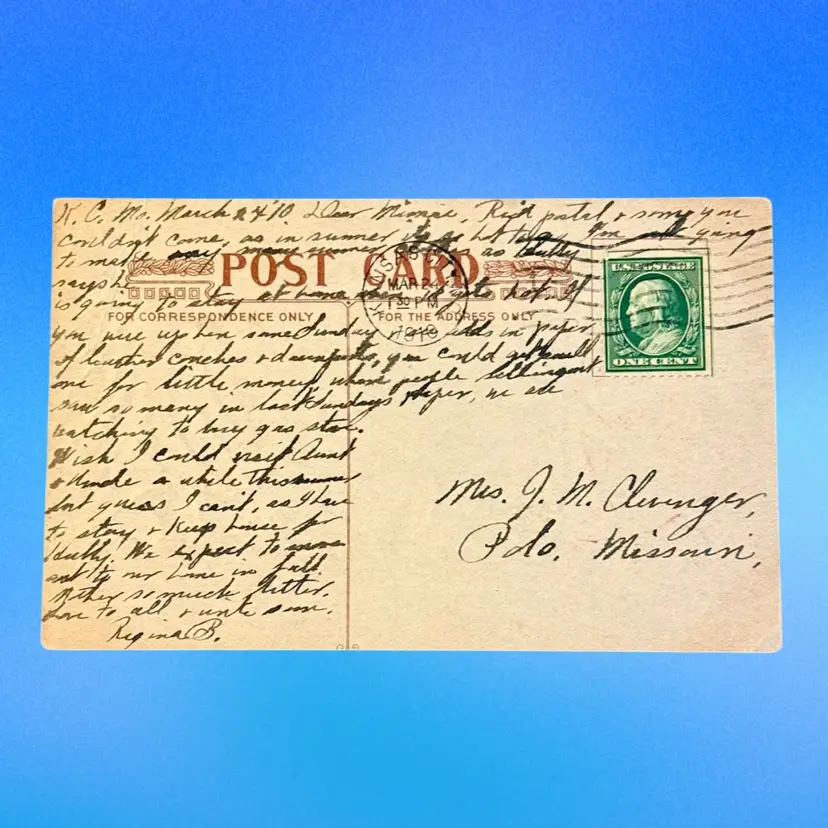 K. C. Mo. March 24 '10. Dear Minnie, Rec'd postal & sorry you
couldn't come, as in summer its so hot to go. You all going
to make any more as Dudly
says
is going to stay at home hot. If
POST CARD
FOR CORRESPONDENCE ONLY
FOR THE ADDRESS ONLY
KANSAS CITY
MAR 24
1 30 PM
1910
U.S. POSTAGE
ONE CENT
you were up here some Sunday read adds in paper
of leather couches & davenports, you could get small
one for little money, where people selling out
saw so many in last Sundays paper, we are
watching to buy gas stove.
Wish I could visit Aunt
& Uncle a while this summer
but guess I can't, as I have
to stay & keep house for
Dudly. We expect to move
out to our home in fall
Mother so much better.
Love to all & write soon.
Regina B.
Mrs. J. M. Clevenger,
Polo, Missouri,